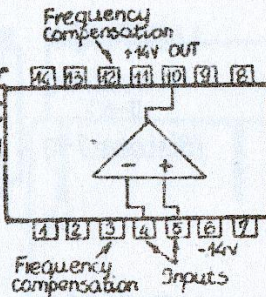 Frequency
Compensation
+14V OUT
14 13 12 11 10 9 8
- +
1 2 3 4 5 6 7
-14V
Frequency
compensation
Inputs